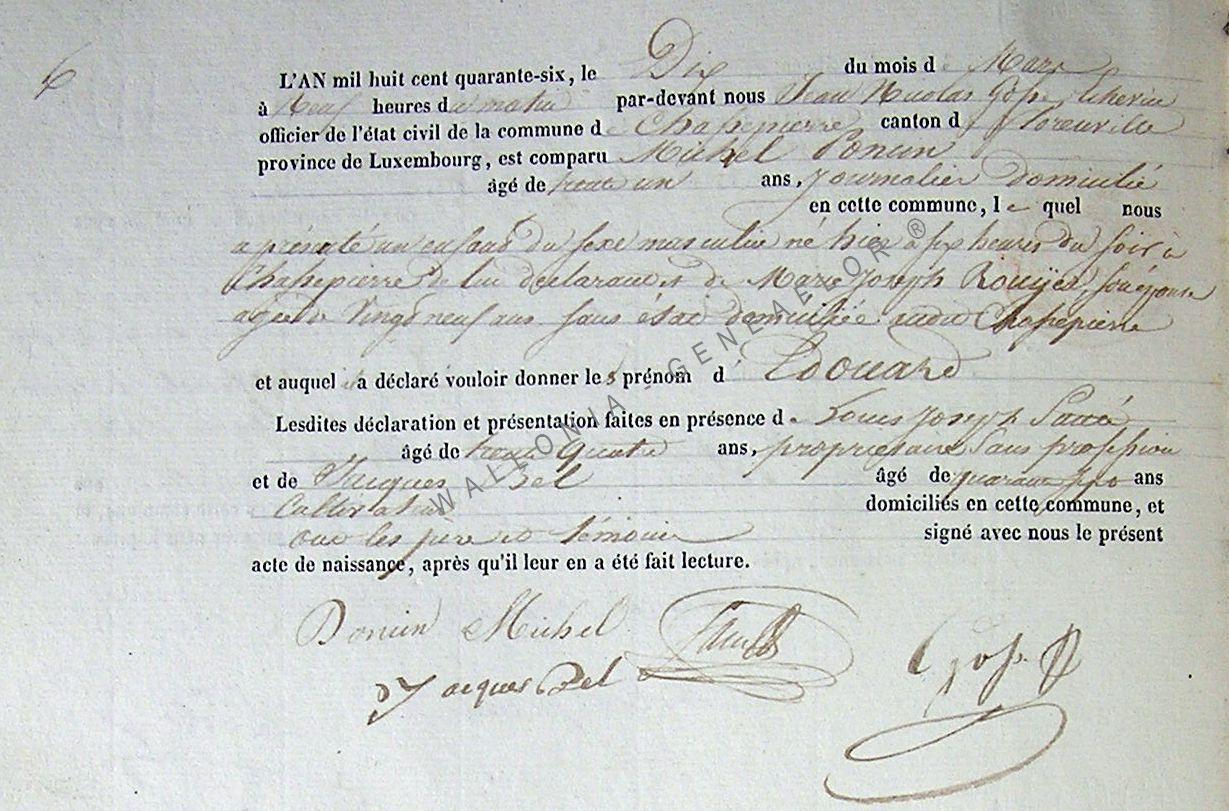 6
L'AN mil huit cent quarante-six, le Dix du mois d Mars
à Neuf heures du matin par-devant nous Jean Nicolas
officier de l'état civil de la commune de Chassepierre canton d Florenville
province de Luxembourg, est comparu Michel Poncin
âgé de trente un ans, journalier domicilié
en cette commune, le quel nous
a présenté un enfant du sexe masculin né hier à six heures du soir à
Chassepierre de lui declarant et de Marie Joseph son épouse
agée de Vingt neuf ans sans état domiciliée audit Chassepierre
et auquel il a déclaré vouloir donner les prénom d' Edouard
Lesdites déclaration et présentation faites en présence de Louis Joseph
âgé de trente quatre ans, propriétaire sans profession
et de Jacques Bel âgé de quarante ans
Cultivateur domiciliés en cette commune, et
ont les père et témoins signé avec nous le présent
acte de naissance, après qu'il leur en a été fait lecture.
Poncin Michel
Jacques Bel
WALLONIA - GENEALOR ®